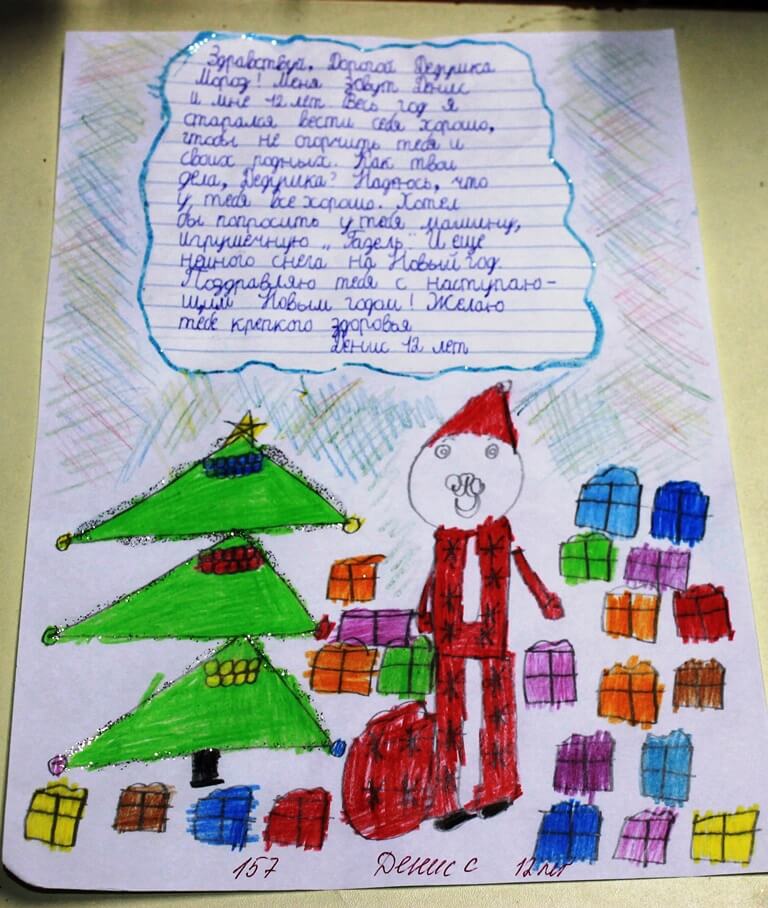 Здравствуй, Дорогой Дедушка
Мороз! Меня зовут Денис
и мне 12 лет Весь год я
старался вести себя хорошо,
чтобы не огорчить тебя и
своих родных. Как твои
дела, Дедушка? Надеюсь, что
у тебя все хорошо. Хотел
бы попросить у тебя машину,
игрушечную „Газель". И ещё
немного снега на Новый год.
Поздравляю тебя с наступаю-
щим Новым годом! Желаю
тебе крепкого здоровья
Денис 12 лет
157 Денис С 12 лет